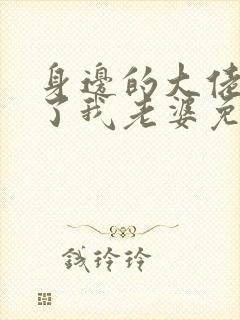 身邊的大佬
了我老婆免
钱玲玲